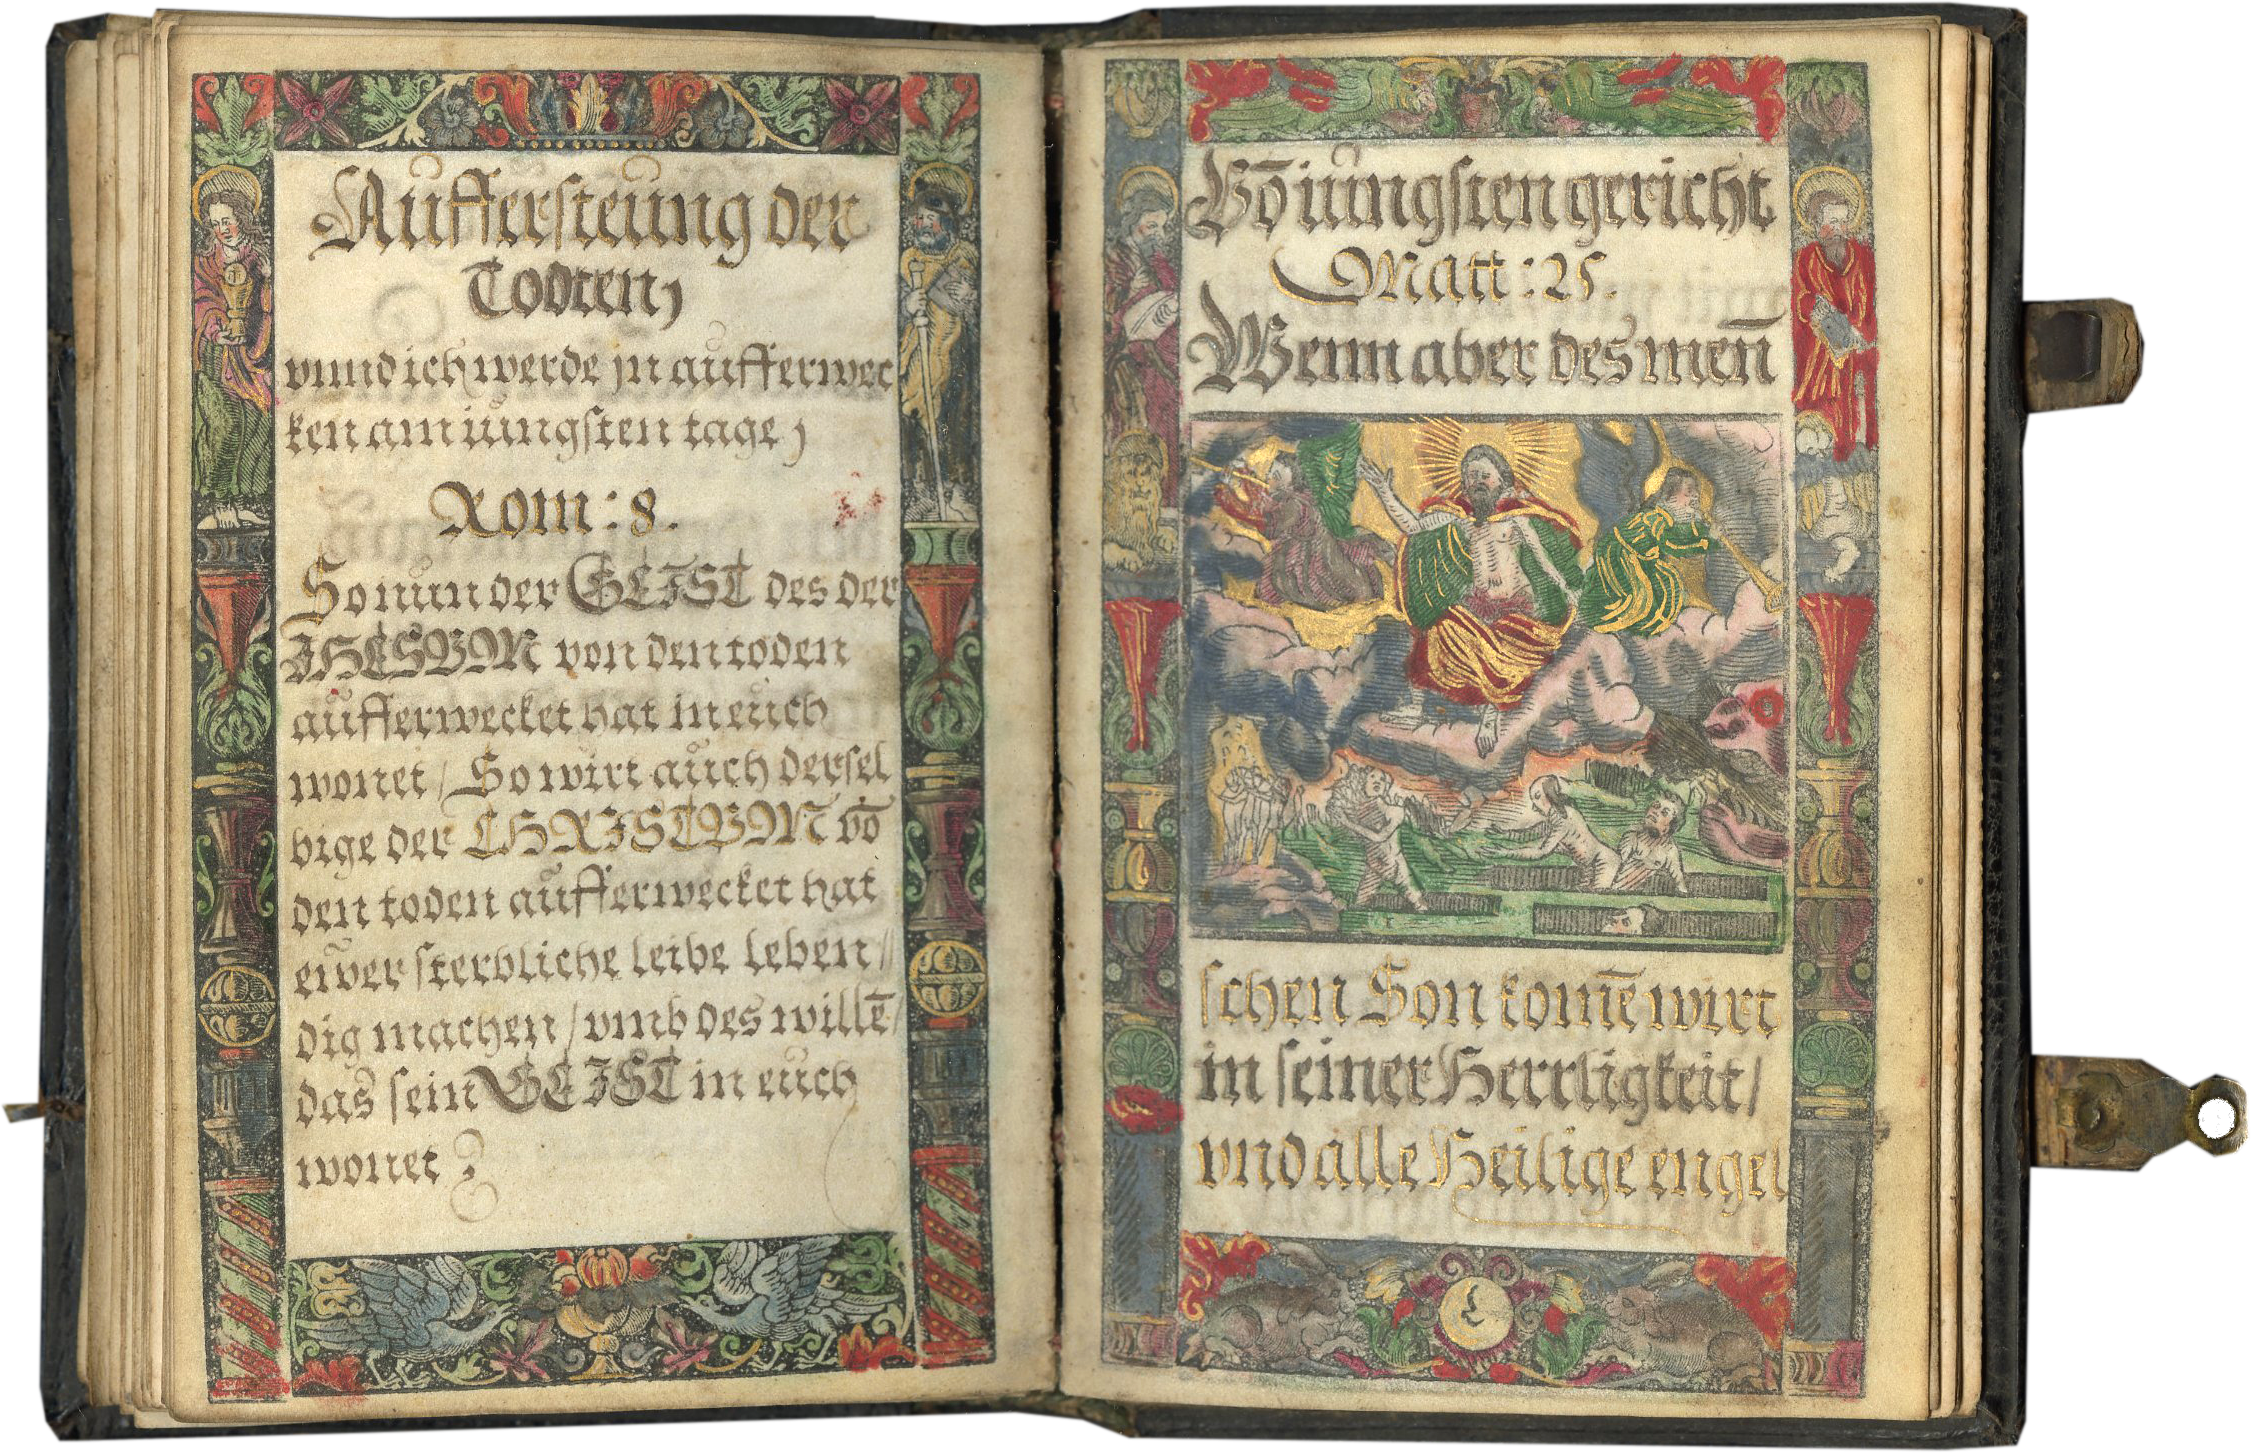 Aůffersteůng der
Todten,
vnnd ich werde jn aufferwec
ken am iůngsten tage,
Rom: 8.
So nun der GEIST des der
IHESVM von den toden
aůfferwecket hat in eůch
wonet / So wirt aůch dersel
bige der CHRISTVM vō
den toden aůfferwecket hat
ewer sterbliche leibe leben//
dig machen / vmb des willē/
das sein GEIST in eůch
wonet
Vō iůngsten gericht
Matt: 25.
Wenn aber des men̄
schen Son komē wirt
in seiner Herrligkeit /
vnd alle Heilige engel